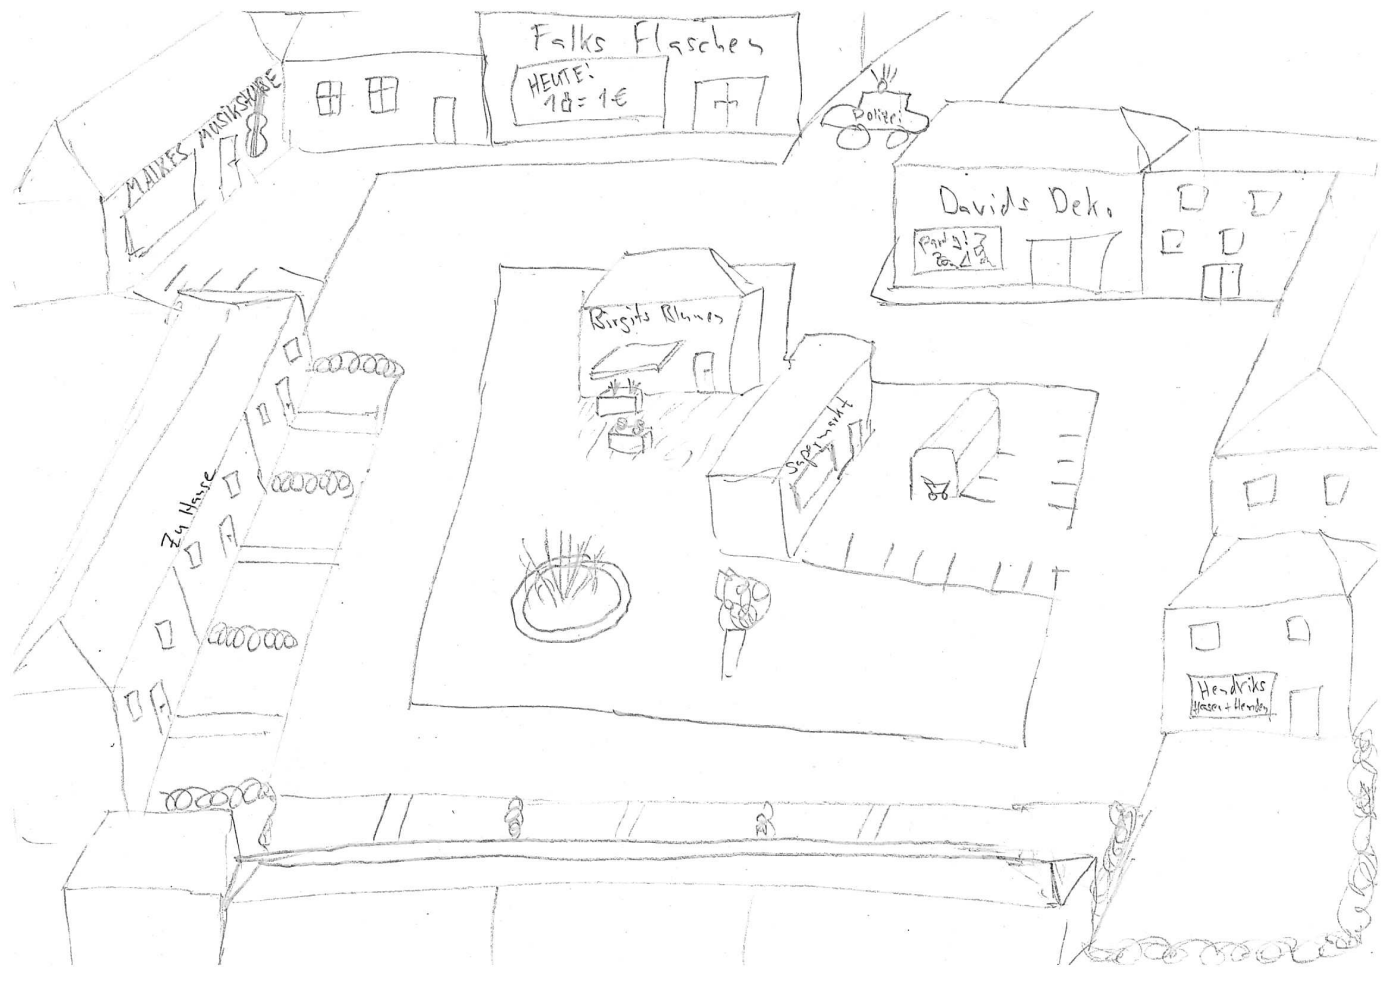 Falks Flaschen
HEUTE!
1 = 1€
MAIKES MUSIKSTUBE
Polizei
Davids Deko
Party!?
Birgits Blumen
Supermarkt
Zu Hause
Hendriks
Hosen + Hemden